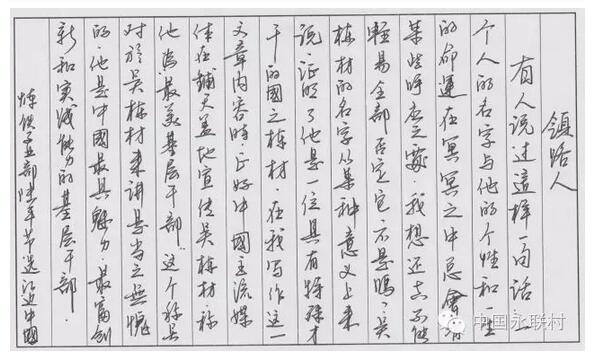 領路人
有人说过這样一句话:一
个人的名字与他的个性和一生
的命運在冥冥之中总會
某些呼应之處。我想还真不能
轻易全部否定它,不是嗎,吴
栋材的名字从某种意义上来
说,证明了他是一位具有特殊才
干的國之栋材。在我写作这一
文章内容時,正好中國主流媒
体在鋪天盖地宣传吴栋材,称
他为"最美基层干部"这个称号
对於吴栋材来讲是当之無愧
的,他是中國最具魅力、最富創
新和实践能力的基层干部。
炼铁部 节选 中國
中国永联村